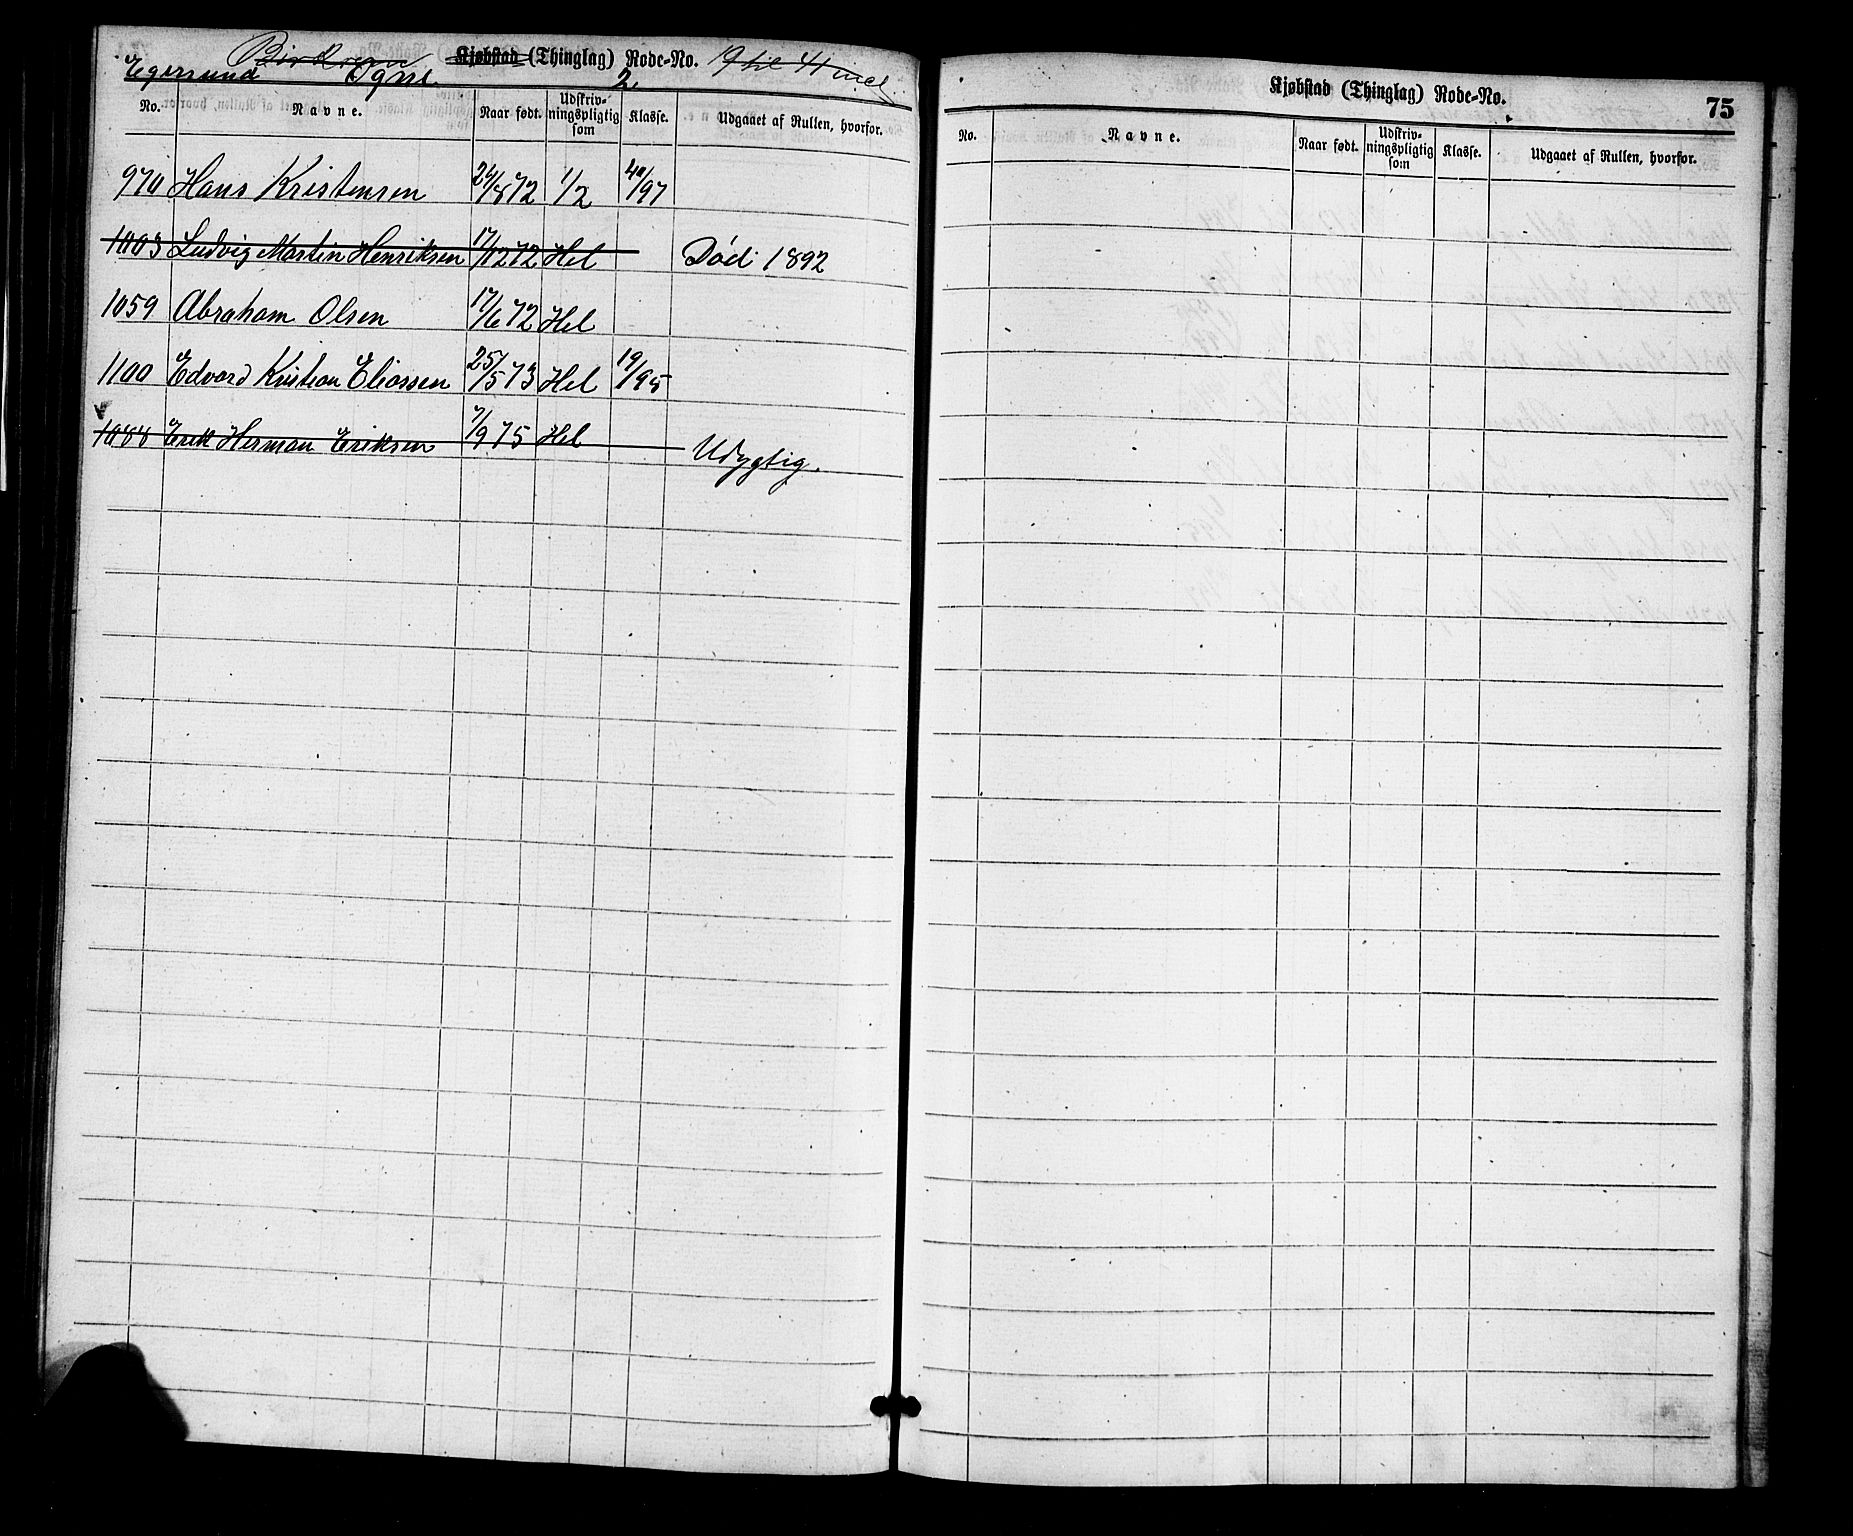 Birkrem Kjøbstad (Thinglag) Rode-No. 9 til 41 incl
Egersund Ogne. 2.
No. Navne. Naar født. Udskriv-ningspligtig som Klasse. Udgaaet af Rullen, hvorfor.
970 Hans Kristensen 24/8 72 1/2 /97
1003 Ludvig Martin Henriksen 17/12 72 Hel Død 1892
1059 Abraham Olsen 17/6 72 Hel
1100 Edvard Kristian Eliassen 25/5 73 Hel 19/95
1088 Erik Herman Eriksen 7/9 75 Hel Udygtig.
Kjøbstad (Thinglag) Rode-No.
75
No. Navne. Naar født. Udskriv-ningspligtig som Klasse. Udgaaet af Rullen, hvorfor.